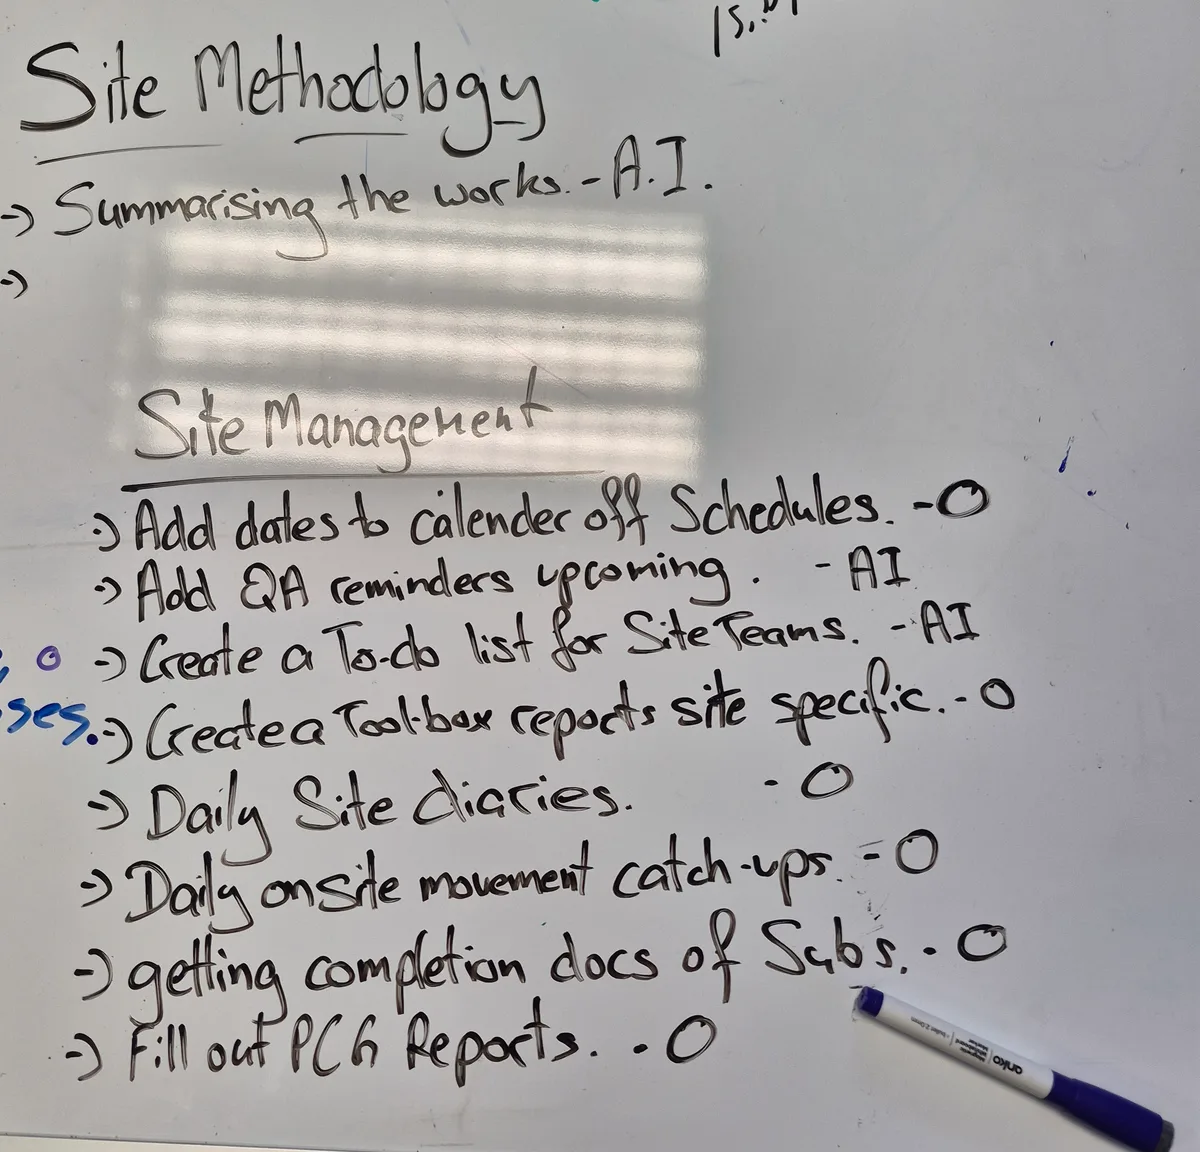 Site Methodology
-> Summarising the works. - A.I.
->
Site Management
-> Add dates to calender off Schedules. - O
-> Add QA reminders upcoming. - AI
o -> Create a To-do list for Site Teams. - AI
ses. -> Create a Tool-box reports site specific. - O
-> Daily Site diaries. - O
-> Daily onsite movement catch-ups. - O
-> getting completion docs of Subs. - O
-> Fill out PCG Reports. - O
anko